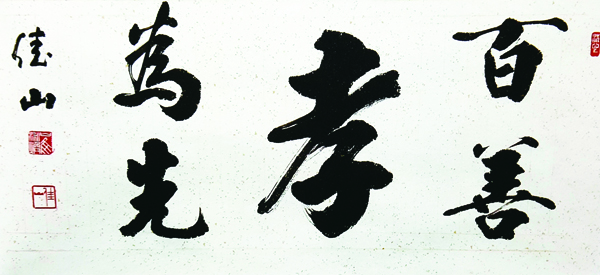 百善
孝
為先
佳山